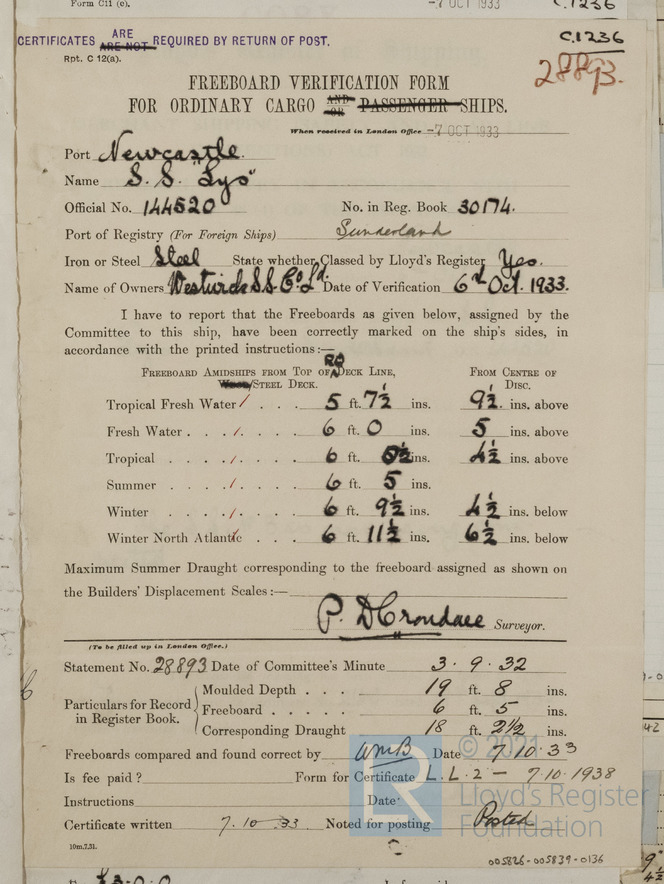 Form C11 (c).
-7 OCT 1933
C.1236
CERTIFICATES ARE ARE NOT REQUIRED BY RETURN OF POST.
C.1236
Rpt. C 12(a).
28893.
FREEBOARD VERIFICATION FORM
FOR ORDINARY CARGO AND OR PASSENGER SHIPS.
When received in London Office -7 OCT 1933
Port Newcastle.
Name S.S. "Lys"
Official No. 144520 No. in Reg. Book 30174.
Port of Registry (For Foreign Ships) Sunderland
Iron or Steel Steel State whether Classed by Lloyd's Register Yes.
Name of Owners S.S. Co. Ld. Date of Verification 6th Oct. 1933.
I have to report that the Freeboards as given below, assigned by the
Committee to this ship, have been correctly marked on the ship's sides, in
accordance with the printed instructions:—
FREEBOARD AMIDSHIPS FROM TOP OF RQ DECK LINE, FROM CENTRE OF
WOOD/STEEL DECK. DISC.
Tropical Fresh Water / . . . 5 ft. 7½ ins. 9½ ins. above
Fresh Water . . . / . . . 6 ft. 0 ins. 5 ins. above
Tropical . . . . / . . . 6 ft. 0½ ins. 4½ ins. above
Summer . . . . / . . . 6 ft. 5 ins.
Winter . . . . / . . . 6 ft. 9½ ins. 4½ ins. below
Winter North Atlantic . . . 6 ft. 11½ ins. 6½ ins. below
Maximum Summer Draught corresponding to the freeboard assigned as shown on
the Builders' Displacement Scales:—
P. D Crondace Surveyor.
(To be filled up in London Office.)
Statement No. 28893 Date of Committee's Minute 3.9.32
Particulars for Record in Register Book.
Moulded Depth . . . 19 ft. 8 ins.
Freeboard . . . . . 6 ft. 5 ins.
Corresponding Draught 18 ft. 2½ ins.
Freeboards compared and found correct by WMB Date 7.10.33
Is fee paid? Form for Certificate L.L.2 — 7.10.1938
Instructions Date
Certificate written 7.10.33 Noted for posting Posted
10m.7.31.
© 2021
Lloyd's Register
Foundation
LR
005826-005839-0136